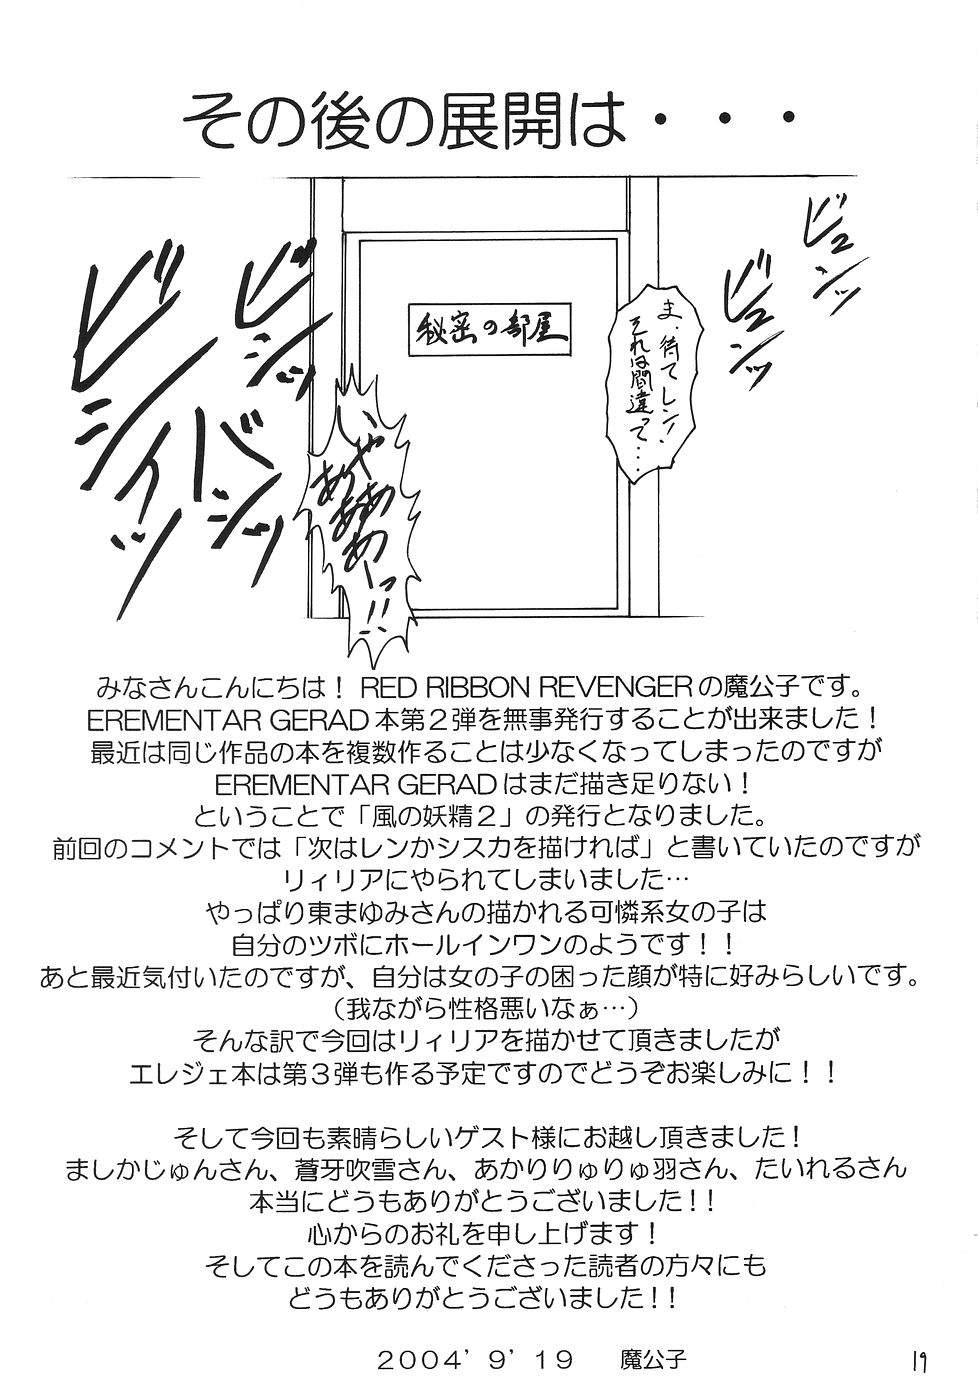 その後の展開は・・・
ビュンッ
ビュンッ
ま、待てレン!
それは間違って・・・・
秘密の部屋
ビシッ
バシッ
ビシィーッ
いやああ
あああーっ!!
みなさんこんにちは！ RED RIBBON REVENGERの魔公子です。
EREMENTAR GERAD本第２弾を無事発行することが出来ました！
最近は同じ作品の本を複数作ることは少なくなってしまったのですが
EREMENTAR GERADはまだ描き足りない！
ということで「風の妖精２」の発行となりました。
前回のコメントでは「次はレンかシスカを描ければ」と書いていたのですが
リィリアにやられてしまいました…
やっぱり東まゆみさんの描かれる可憐系女の子は
自分のツボにホールインワンのようです！！
あと最近気付いたのですが、自分は女の子の困った顔が特に好みらしいです。
（我ながら性格悪いなぁ…）
そんな訳で今回はリィリアを描かせて頂きましたが
エレジェ本は第３弾も作る予定ですのでどうぞお楽しみに！！
そして今回も素晴らしいゲスト様にお越し頂きました！
ましかじゅんさん、蒼牙吹雪さん、あかりりゅりゅ羽さん、たいれるさん
本当にどうもありがとうございました！！
心からのお礼を申し上げます！
そしてこの本を読んでくださった読者の方々にも
どうもありがとうございました！！
２００４’９’１９　魔公子
19